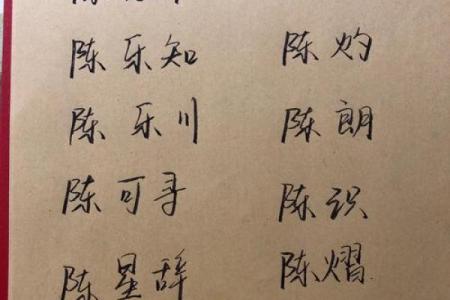 陈乐知 陈灼
陈乐川 陈朗
陈可寻 陈识
陈星辞 陈熠